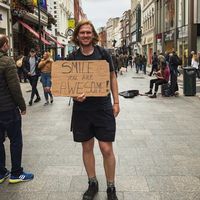 SMILE
YOU ARE
AWESOME!